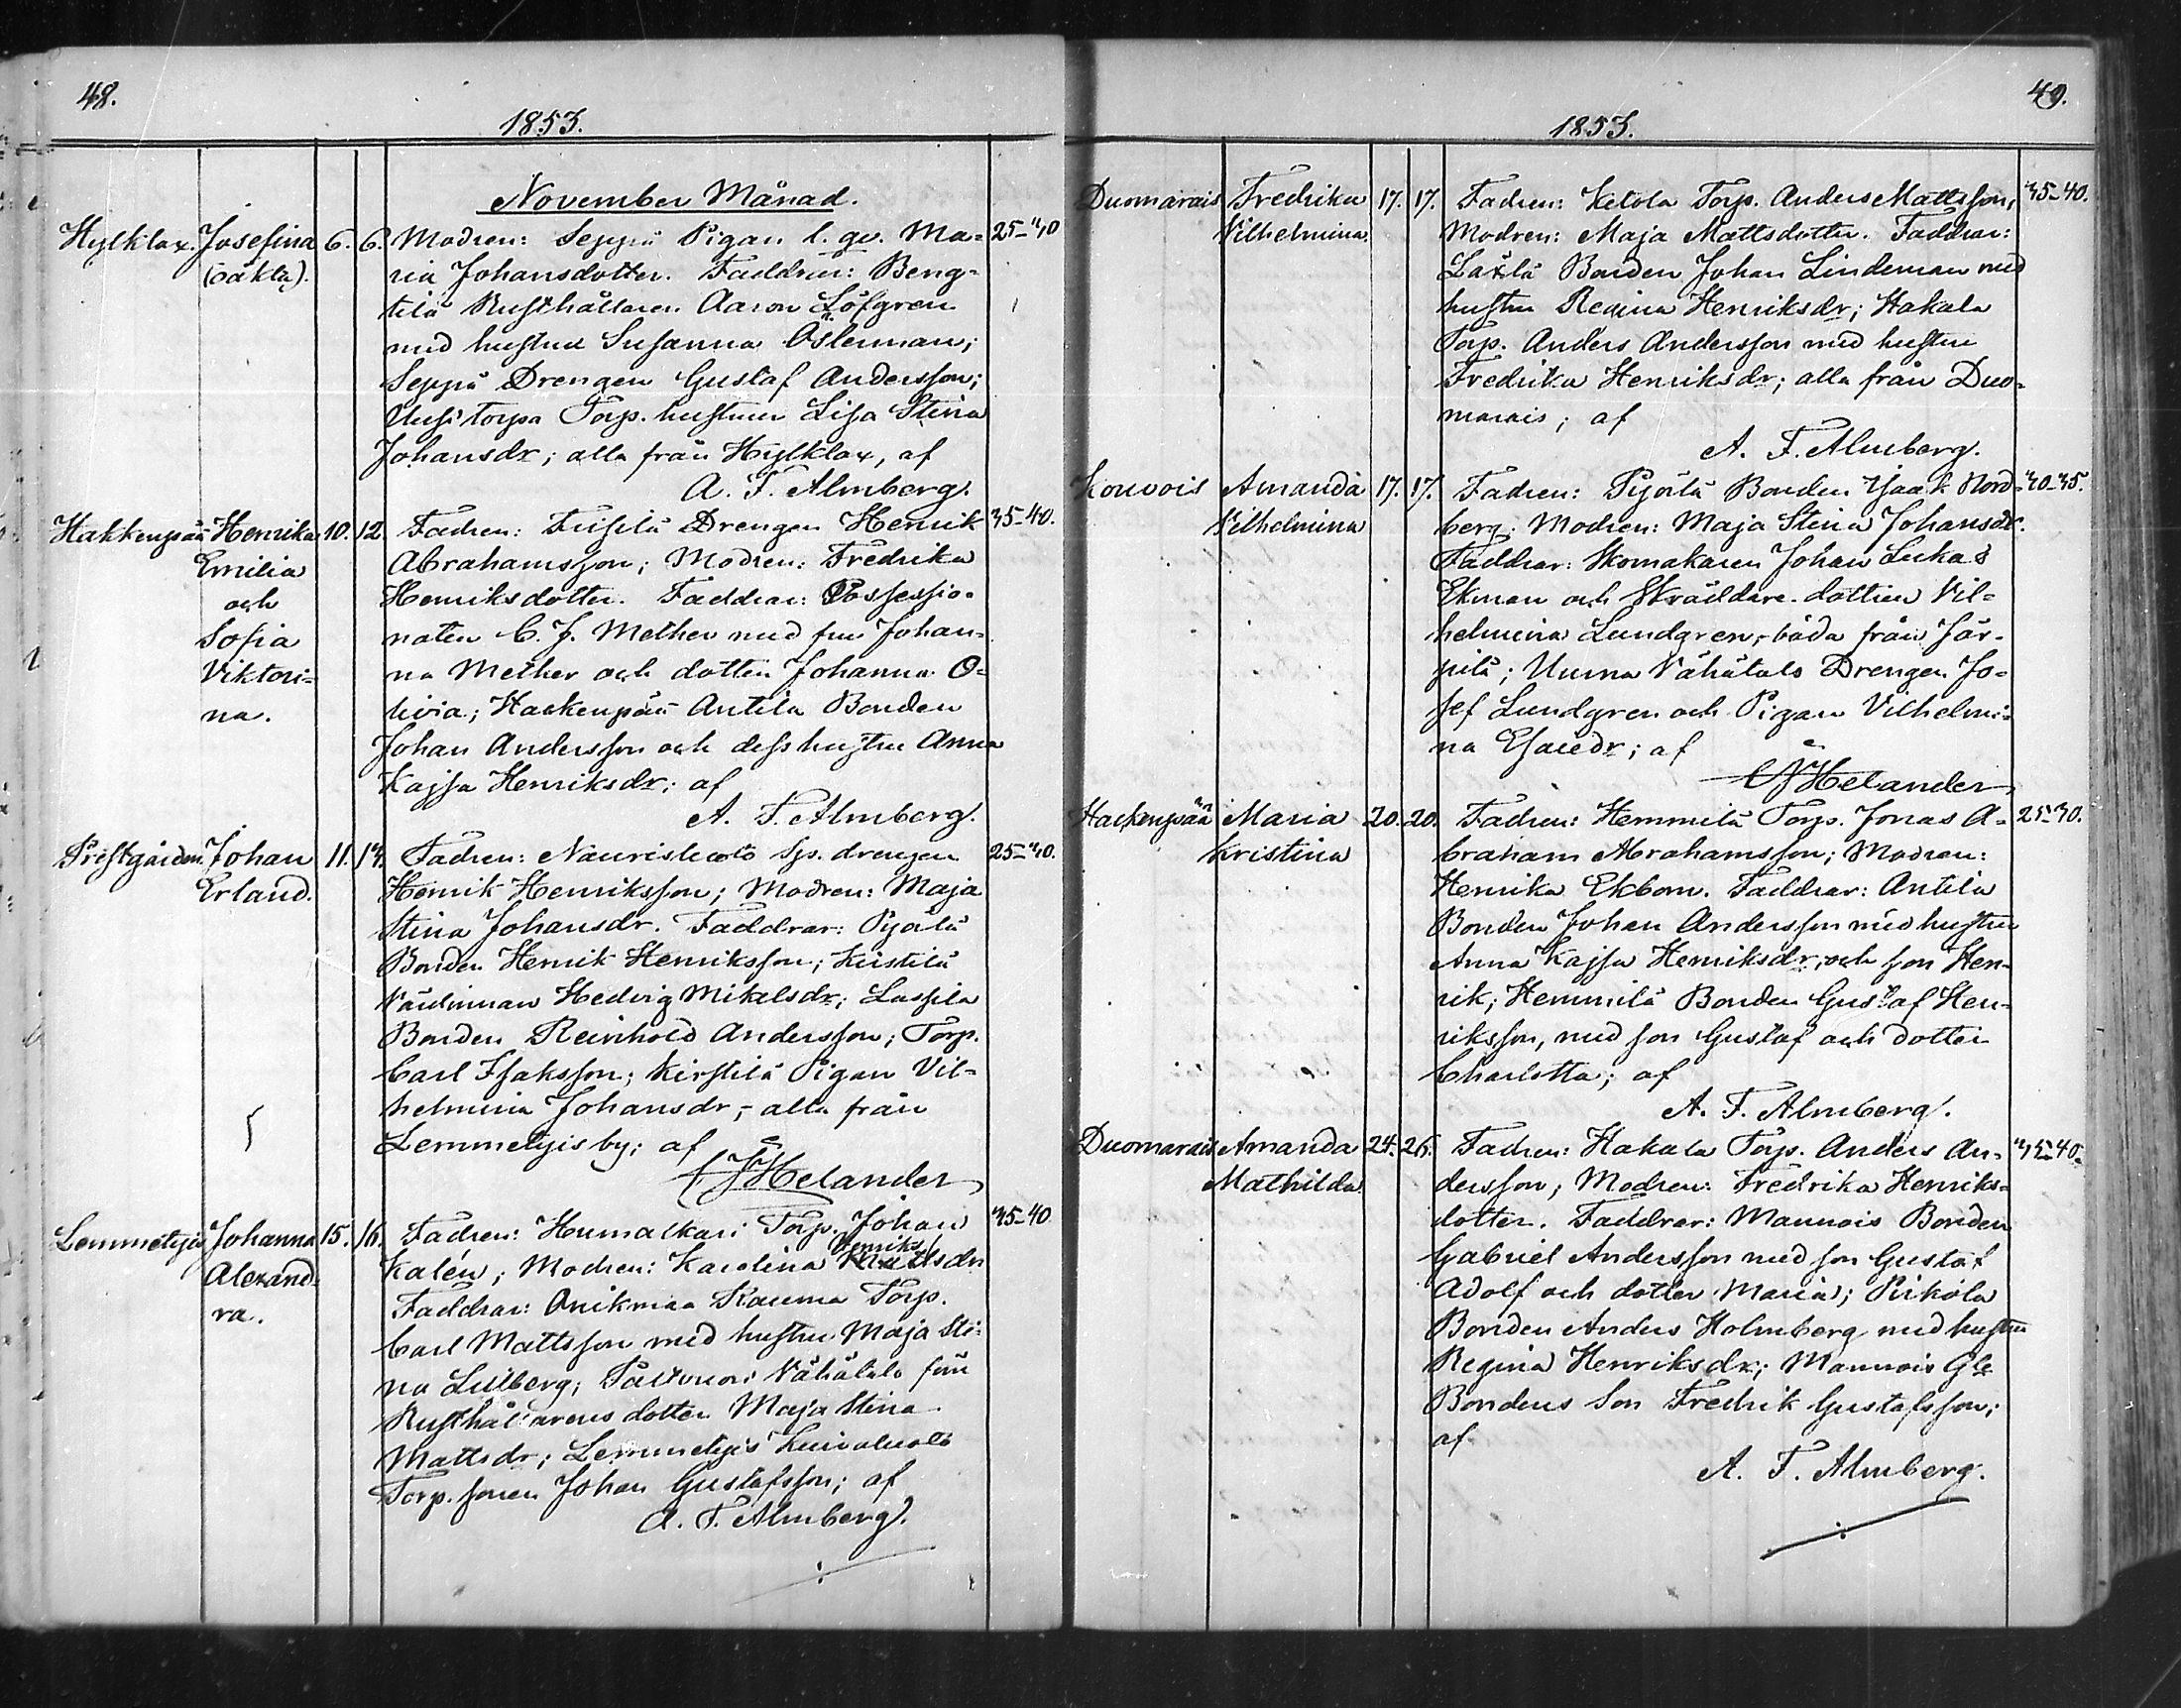 48.
1853.
November Månad.
Hylklax. Josefina 6. 6. Modren: Seppä Pigan l. qv. Ma= 25-30
(oäkta). ria Johansdotter. Faddrar: Beng-
tilä Rusthållaren Aaron Löfgren
med hustru Susanna Österman;
Seppä Drengen Gustaf Andersson;
Uusitorpa Torp. hustrun Lisa Stina
Johansdr; alla från Hylklax, af
A. F. Almberg.
Hakkenpää Henrika 10. 12. Fadren: Drengen Henrik 35-40.
Emilia Abrahamsson; Modren: Fredrika
och Henriksdotter. Faddrar: Possessio-
Sofia naten C. J. Mether med fru Johan-
Viktori= na Mether och dotter Johanna O=
na. livia; Hackenpää Antila Bonden
Johan Andersson och dess hustru Anna
Kajsa Henriksdr; af
A. F. Almberg.
Prestgården. Johan 11. 14. Fadren: Nauristo Sp. drengen 25-30.
Erland. Henrik Henriksson; Modren: Maja
Stina Johansdr. Faddrar: Pyöilä
Bonden Henrik Henriksson; Kirstilä
Värdinnan Hedvig Mikelsdr; Lassila
Bonden Reinhold Andersson; Torp.
Carl Isaksson; Kirstilä Pigan Vil=
helmina Johansdr; - alla från
Lemmetyis by; af
CJHelander
Lemmetyis Johanna 15. 16. Fadren: Humalkari Torp. Johan 35-40.
Henriks
Alexand- Kalén; Modren: Karolina sdr
ra. Faddrar: Onikmaa Rauma Torp.
Carl Mattsson med hustru Maja Sti=
na Lillberg; Vähätalo från
Rusthållarens dotter Maja Stina
Mattsdr; Lemmetyis
Torp. sonen Johan Gustafsson; af
A. F. Almberg.
49.
1853.
Duomarais Fredrika 17. 17. Fadren: Ketola Torp. Anders Mattsson, 35-40.
Vilhelmina. Modren: Maja Mattsdotter. Faddrar:
Laxlä Bonden Johan Lindeman med
hustru Regina Henriksdr; Hakala
Torp. Anders Andersson med hustru
Fredrika Henriksdr; alla från Duo-
marais; af
A. F. Almberg.
Kouvois Amanda 17. 17. Fadren: Pyöilä Bonden Isaak Nord- 30-35.
Vilhelmina berg; Modren: Maja Stina Johansdr.
Faddrar: Skomakaren Johan Lukas
Ekman och Skräddare-dottren Vil=
helmina Lundgren, - båda från Jär-
pilä; Uusna Vähätalo Drengen Jo=
sef Lundgren och Pigan Vilhelmi=
na Esaiedr; af
CJHelander
Hackenpää Maria 20. 20. Fadren: Hemmilä Torp. Jonas A- 25-30.
Kristina braham Abrahamsson; Modren:
Henrika Ekbom. Faddrar: Antila
Bonden Johan Andersson med hustru
Anna Kajsa Henriksdr, och son Hen-
rik; Hemmilä Bonden Gustaf Hen-
riksson, med son Gustaf och dotter
Charlotta; af
A. F. Almberg.
Duomarais Amanda 24. 26. Fadren: Hakala Torp. Anders An- 35-40.
Mathilda. dersson; Modren: Fredrika Henriks-
dotter. Faddrar: Mannois Bonden
Gabriel Andersson med son Gustaf
Adolf och dotter Maria; Pirkola
Bonden Anders Holmberg med hustru
Regina Henriksdr; Mannois Gle
Bondens Son Fredrik Gustafsson;
af
A. F. Almberg.